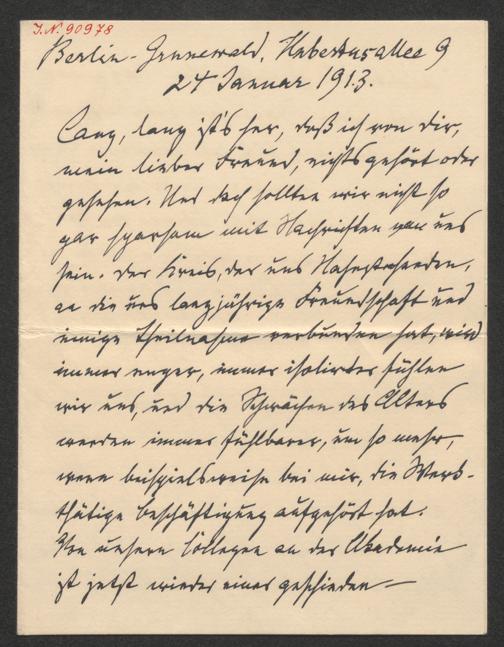 I.N. 90978
Berlin-Grunewald, Hubertusallee 9
24 Januar 1913.
Lang, lang ist's her, daß ich von dir,
mein lieber Freund, nichts gehört oder
gesehen. Und doch sollten wir nicht so
gar sparsam mit Nachrichten von uns
sein. Der Kreis, der uns Nahestehenden,
an die uns langjährige Freundschaft und
innige Theilnahme verbunden hat, wird
immer enger, immer isolirter fühlen
wir uns, und die Schwächen des Alters
werden immer fühlbarer, um so mehr,
wenn beispielsweise bei mir, die Werk-
thätige Beschäftigung aufgehört hat.
Von unsern Collegen an der Akademie
ist jetzt wieder einer geschieden —